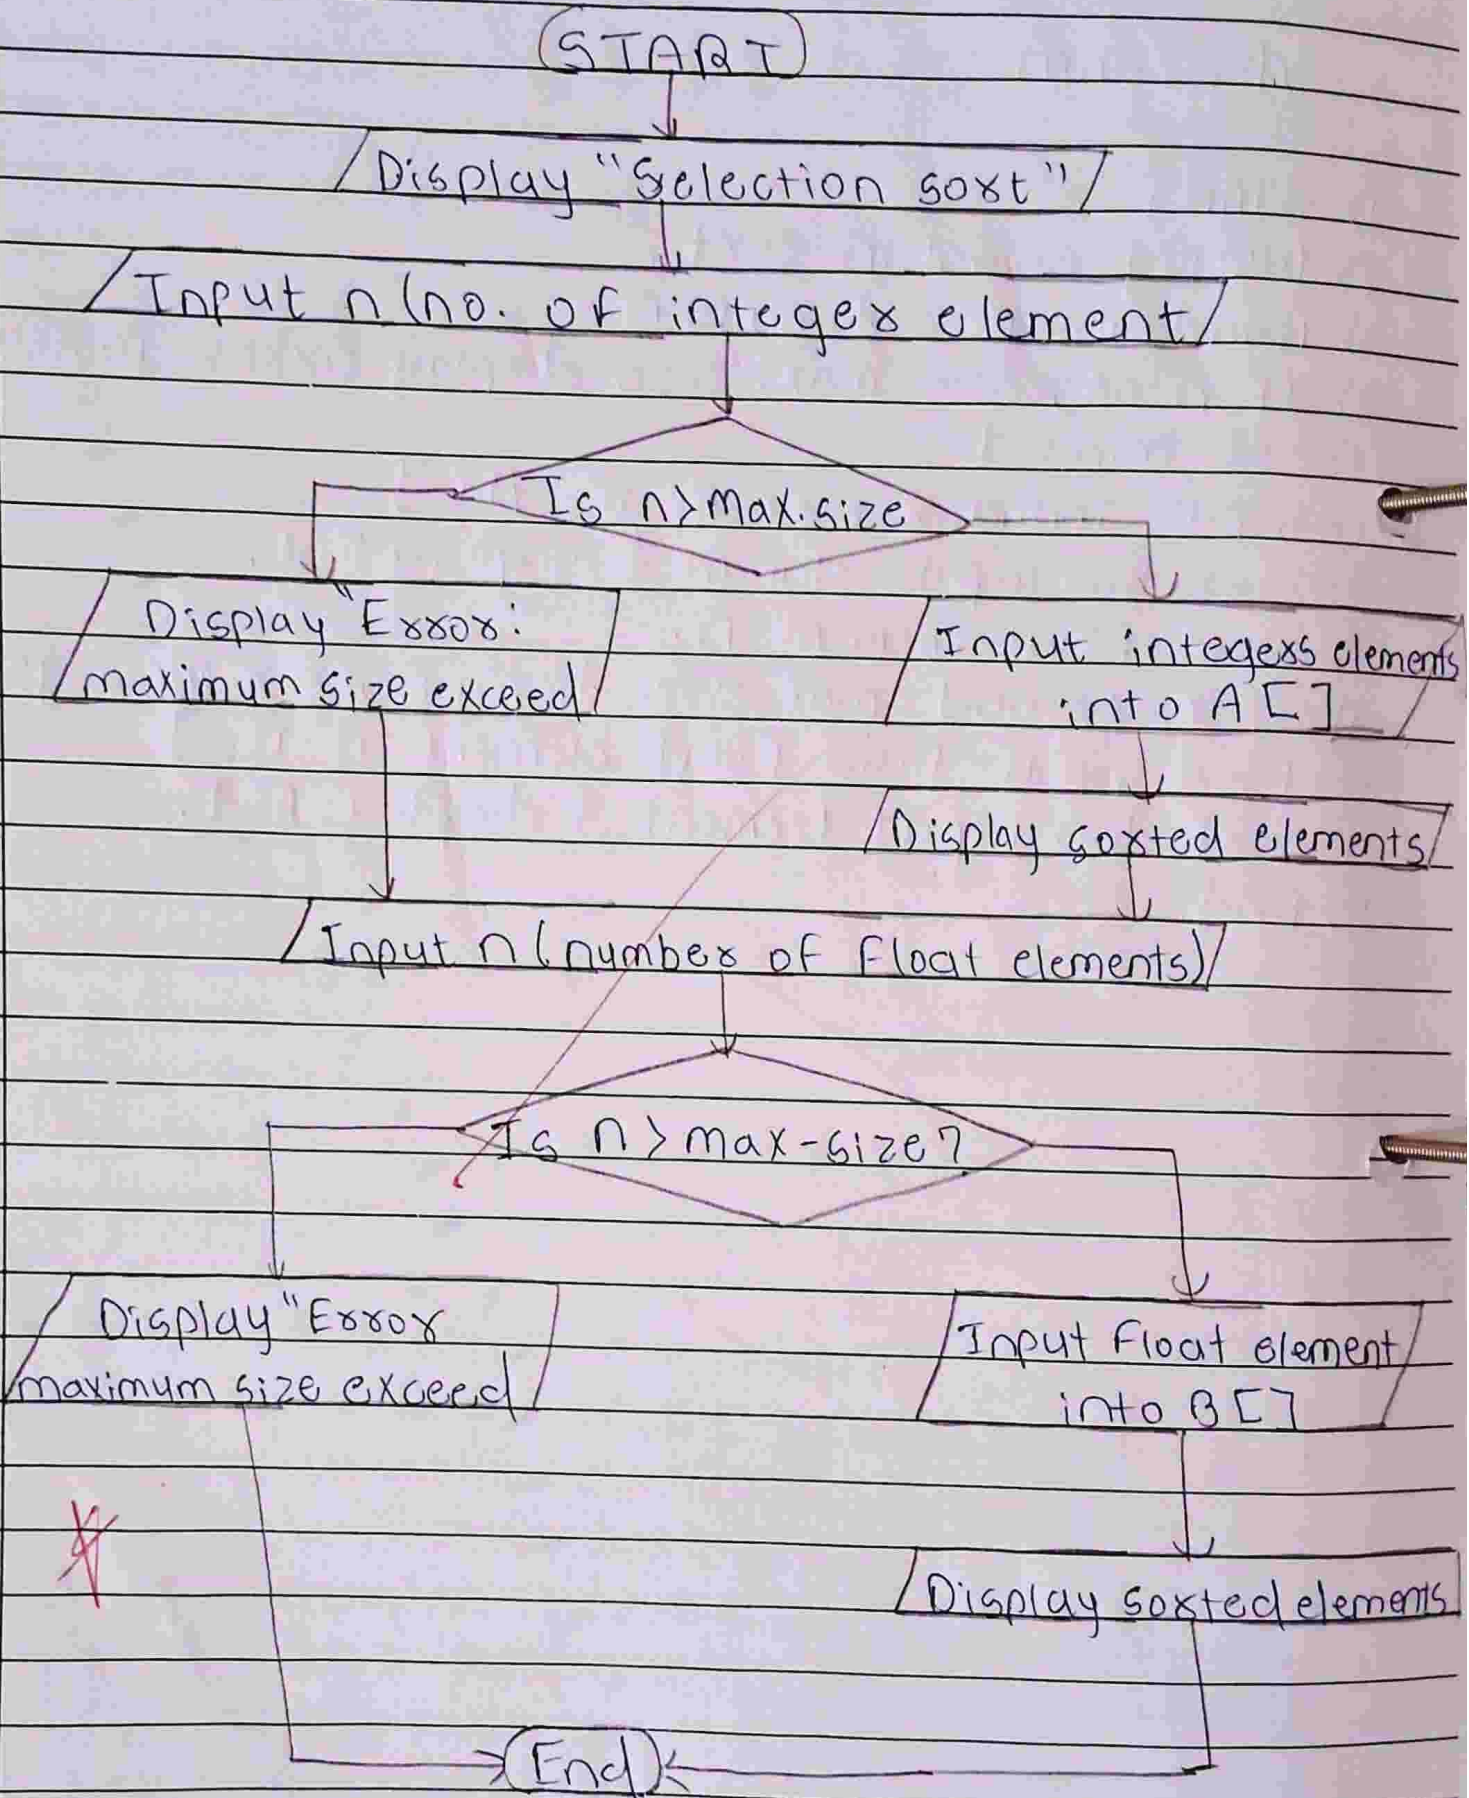 START
Display "Selection sort"
Input n (no. of integer element
Is n>max.size
Display "Error:
maximum size exceed
Input integers elements
into A[]
Display sorted elements
Input n (number of Float elements)
Is n > max-size?
Display "Error
maximum size exceed
Input Float element
into B[]
Display sorted elements
End